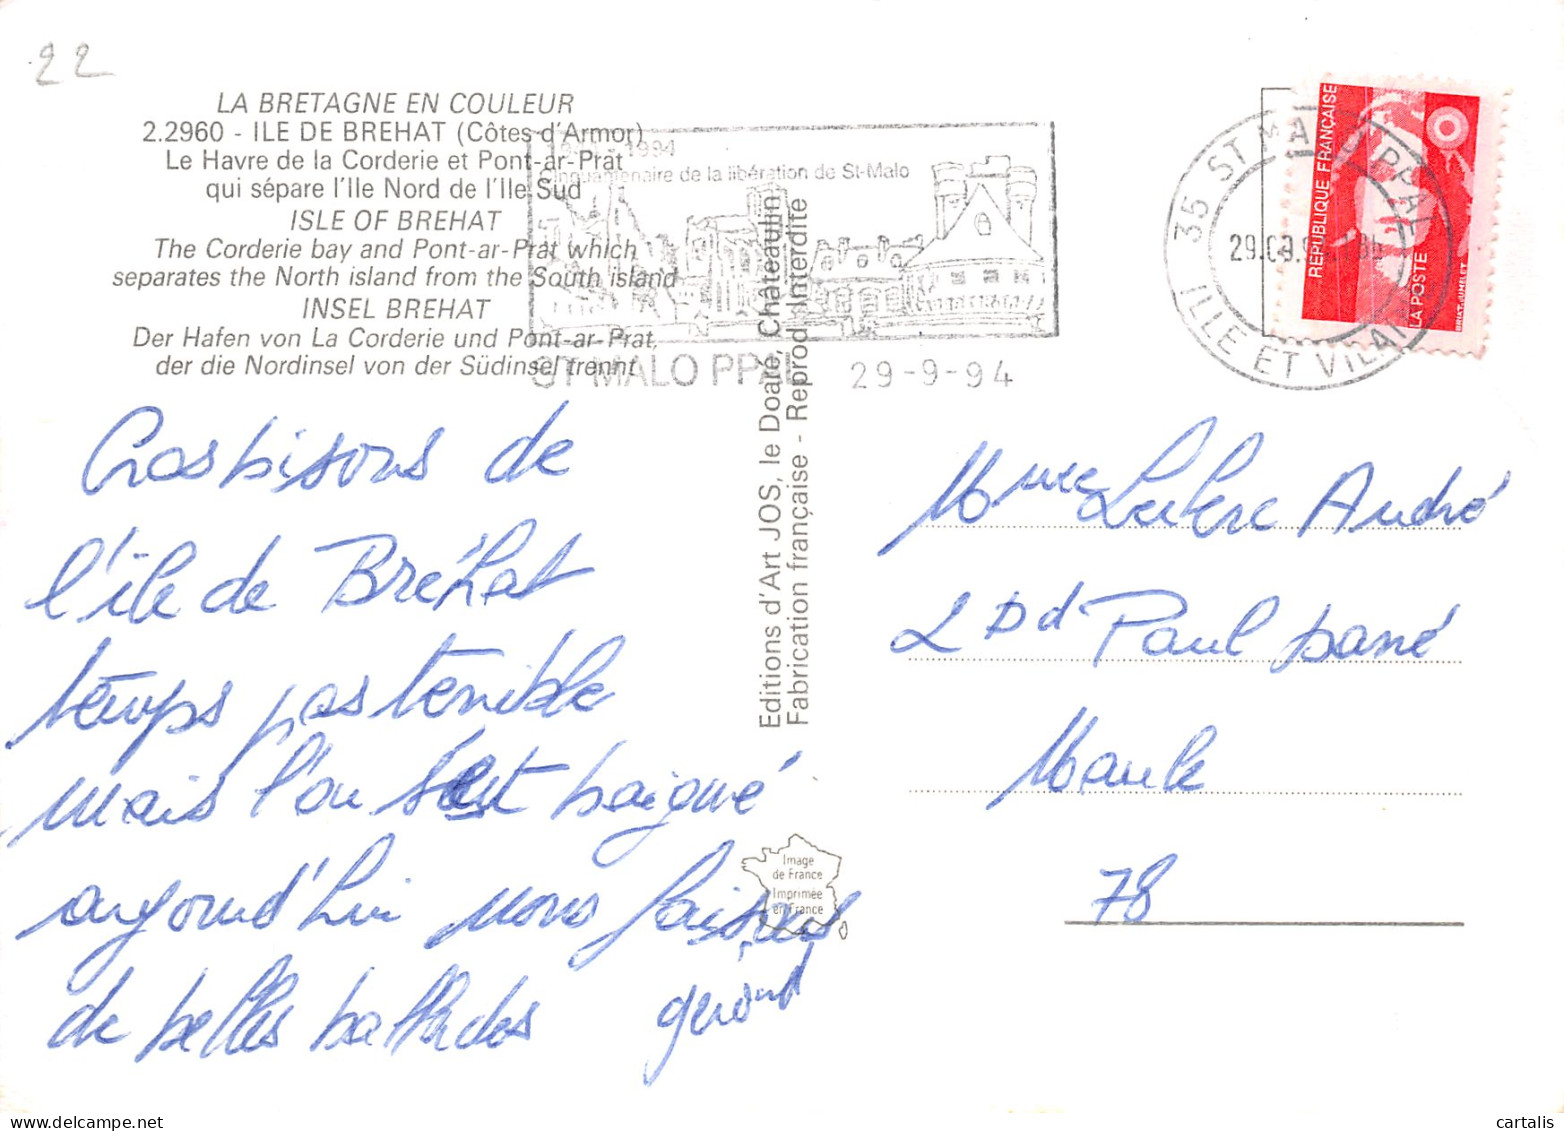 22
LA BRETAGNE EN COULEUR
2.2960 - ILE DE BREHAT (Côtes-d'Armor)
Le Havre de la Corderie et Pont-ar-Prat
qui sépare l'Ile Nord de l'Ile Sud
ISLE OF BREHAT
The Corderie bay and Pont-ar-Prat which
separates the North island from the South island
INSEL BREHAT
Der Hafen von La Corderie und Pont-ar-Prat,
der die Nordinsel von der Südinsel trennt
1994
Cinquantenaire de la libération de St-Malo
ST MALO PPAL 29-9-94
35 ST MALO PPAL
29.
ILLE ET VILAINE
REPUBLIQUE FRANÇAISE
LA POSTE
BRIAT-JUMELET
Editions d'Art JOS, le Doaré, Châteaulin
Fabrication française - Reprod. Interdite
Gros bisous de
l'île de Bréhat
temps pas terrible
mais l'on s'est baigné
aujourd'hui nous faisons
de belles ballades
Image
de France
Imprimée
en France
Mme André
2 Bd Paul
Maule
78
cartalis
www.delcampe.net